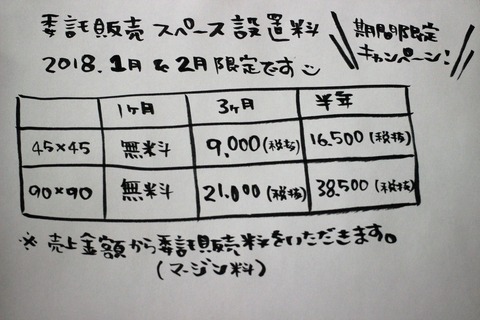 委託販売 スペース設置料
期間限定
キャンペーン!
2018.1月&2月限定です
1ヶ月 3ヶ月 半年
45×45 無料 9,000(税抜) 16.500(税抜)
90×90 無料 21.000(税抜) 38.500(税抜)
※ 売上金額から委託販売料をいただきます。
(マージン料)